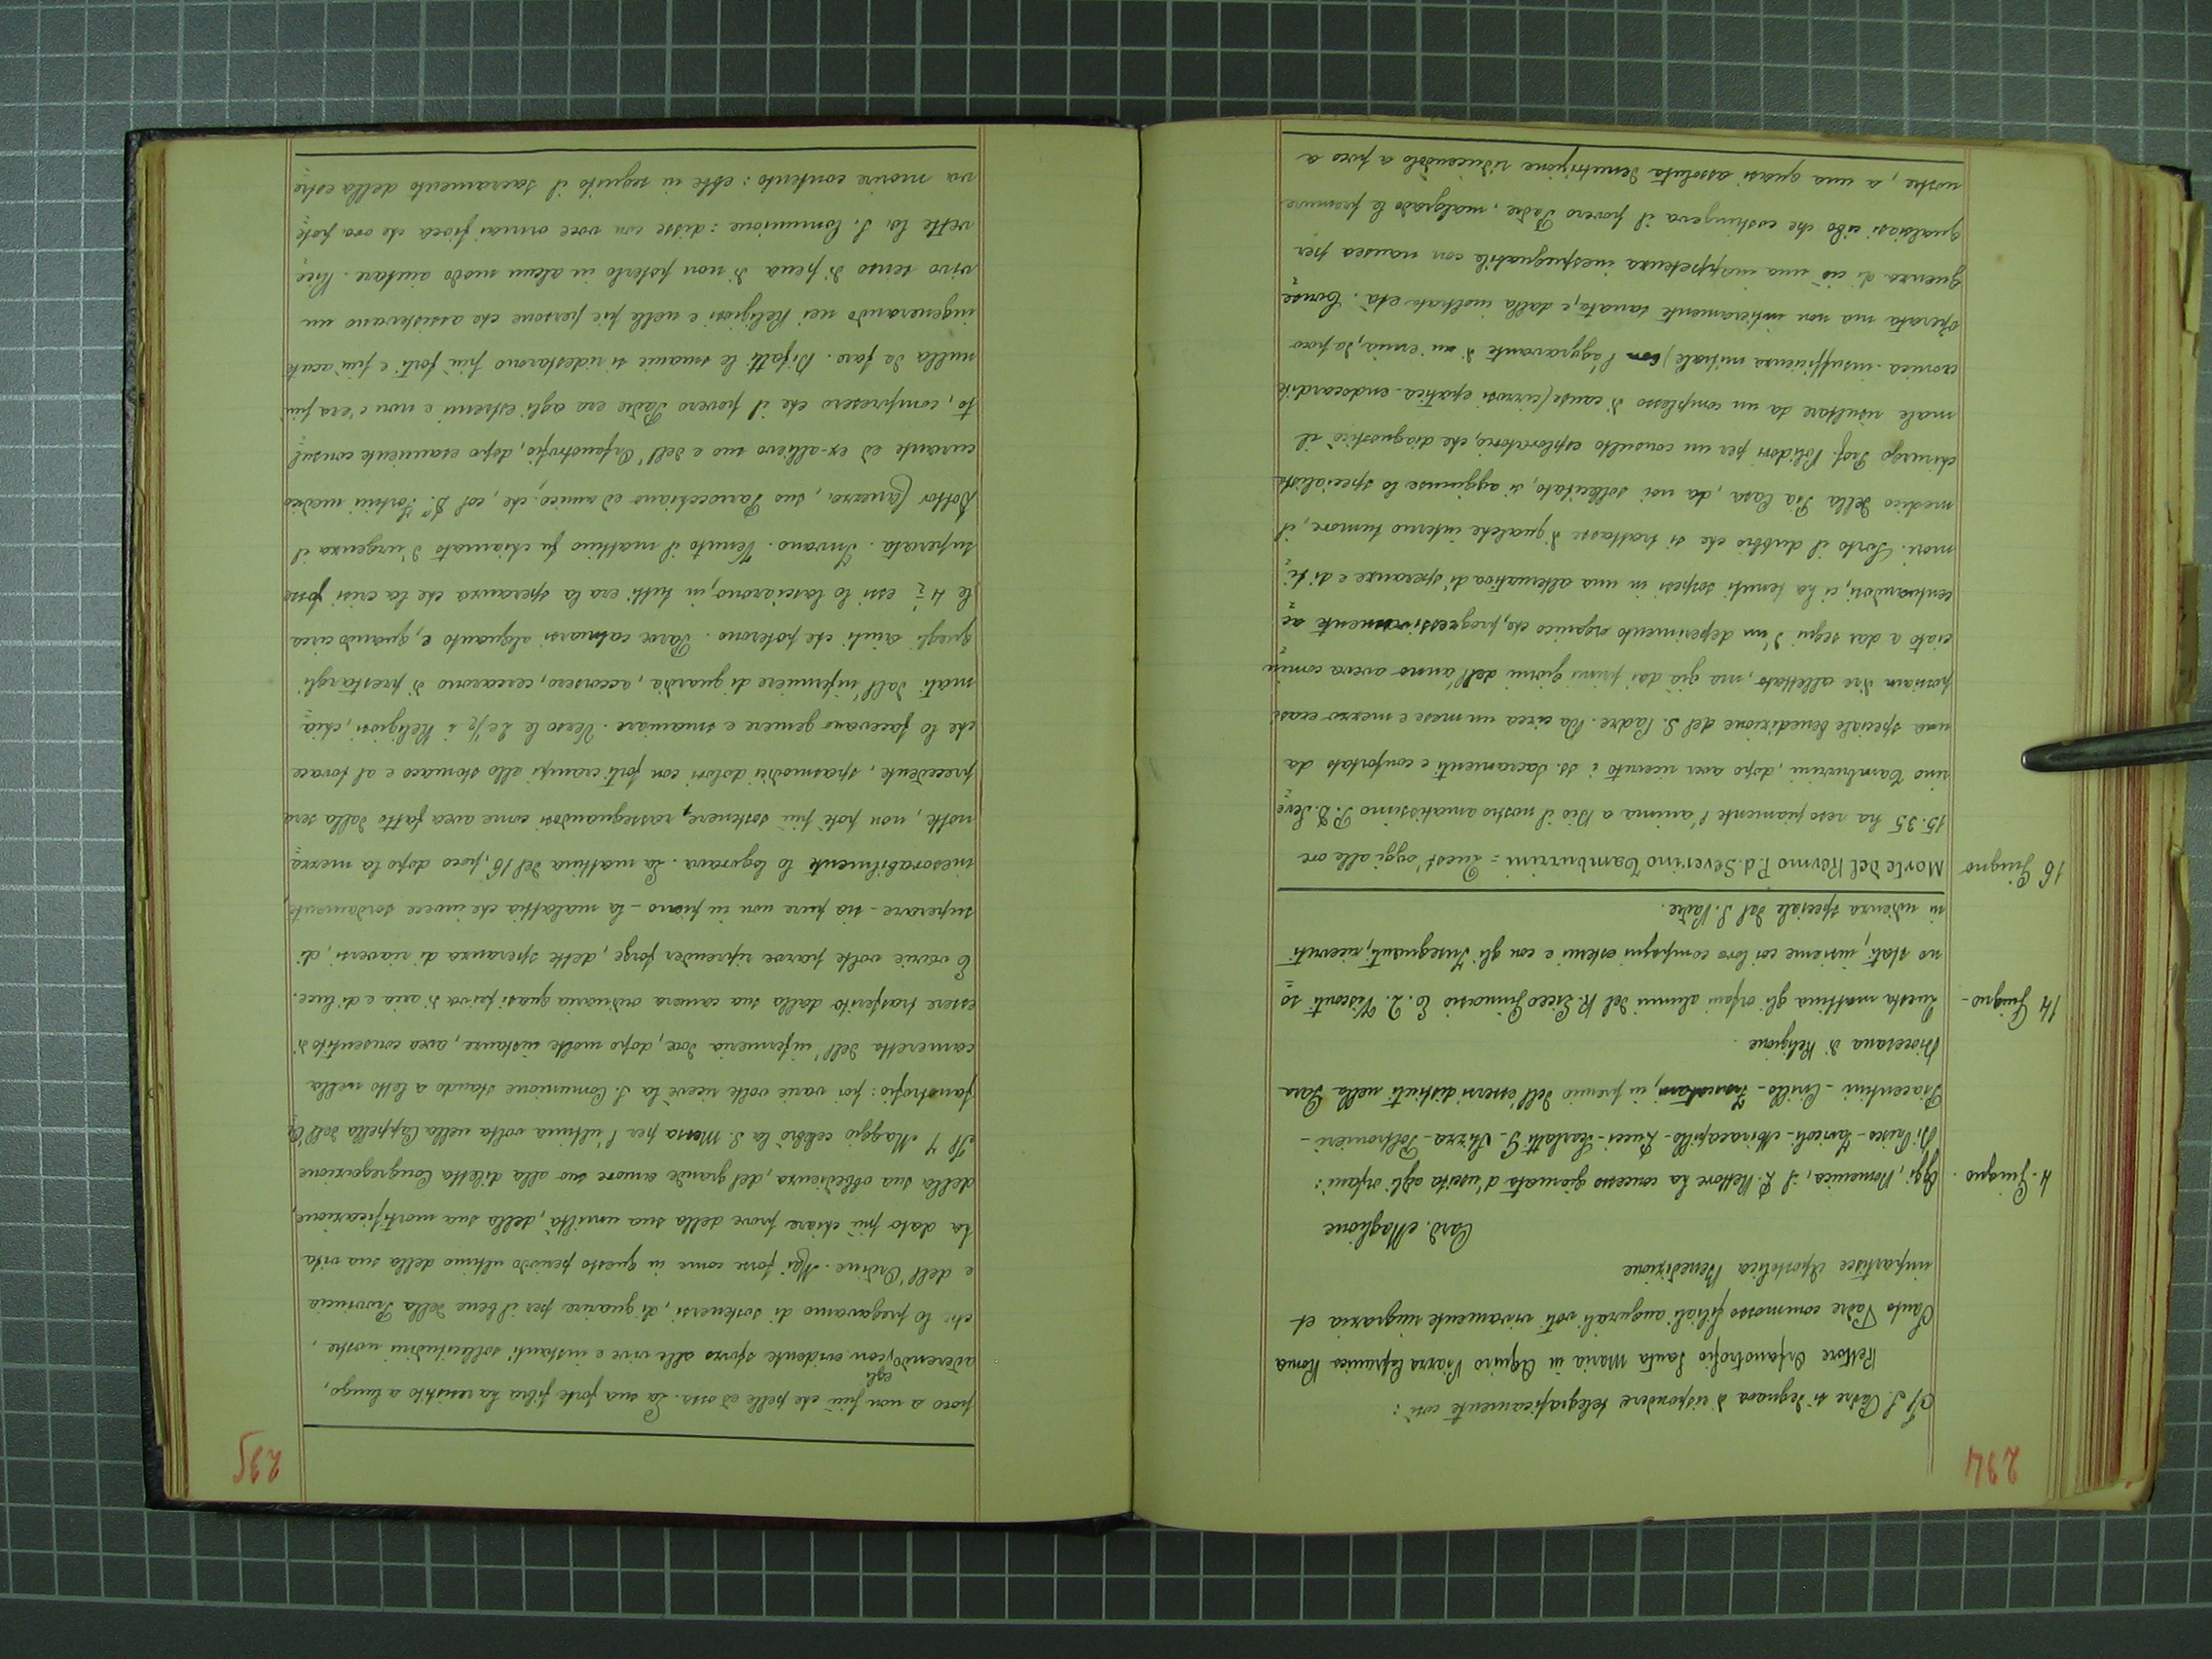 234
Il S. Padre si degnava di rispondere telegraficamente così:
Rettore Orfanotrofio Santa Maria in Aquiro Piazza Capranica Roma
Santo Padre commosso filiali augurali voti vivamente ringrazia et
impartisce Apostolica Benedizione
Card. Maglione
4. Giugno. Oggi, Domenica, il P. Rettore ha concesso giornata d'uscita agli orfani:
Di Prisco - Iavicoli - Miracapillo - Lucci - Scarlatti G. - Poltronieri -
Piacentini - Cirillo - in premio dell'essersi distinti nella Gara
Diocesana di Religione.
14 Giugno - Questa mattina gli orfani alunni del R. Liceo Ginnasio E. Q. Visconti so
no stati, insieme coi loro compagni esterni e con gli Insegnanti, ricevuti
in udienza speciale dal S. Padre.
16 Giugno Morte del Rev.mo P. d. Severino Tamburrini = Quest'oggi alle ore
15.35 ha reso piamente l'anima a Dio il nostro amatissimo P. D. Seve
rino Tamburrini, dopo aver ricevuto i ss. Sacramenti e confortato da
una speciale benedizione del S. Padre. Da circa un mese e mezzo quasi
possiam dire allettato, ma già dai primi giorni dell'anno aveva comin
ciato a dar segni d'un deperimento organico che, progressivamente ac
centuandosi, ci ha tenuti sospesi in una alternativa di speranze e di ti
mori. Sorto il dubbio che si trattasse di qualche interno tumore, il
medico della Pia Casa, da noi sollecitato, si aggiunse lo specialista
chirurgo Prof. Polidori per un consulto esplorativo, che diagnosticò il
male risultare da un complesso di cause (cirrosi epatica - endocardite
cronica - insufficienza mitrale) con l'aggravante di un'ernia, da poco
operata ma non intieramente sanata, e dalla inoltrata età. Conse
guenza di ciò una inappetenza inespugnabile con nausea per
qualsiasi cibo che costringeva il povero Padre, malgrado le premure
nostre, a una quasi assoluta denutrizione riducendolo a poco a
235
poco a non più che pelle ed ossa. La sua forte fibra ha resistito a lungo,
aderendo egli, con evidente sforzo alle vive e instanti sollecitudini nostre,
che lo pregavamo di sostenersi, di guarire per il bene della Provincia
e dell'Ordine. Mai forse come in questo periodo ultimo della sua vita
ha dato più chiare prove della sua umiltà, della sua mortificazione,
della sua obbedienza, del grande amore suo alla diletta Congregazione
Il 7 Maggio celebrò la S. Messa per l'ultima volta nella Cappella dell'Or
fanotrofio: poi varie volte ricevè la S. Comunione stando a letto nella
cameretta dell'infermeria dove, dopo molte instanze, avea consentito di
essere trasferito dalla sua camera ordinaria quasi priva di aria e di luce.
E varie volte parve riprender forze, dette speranza di riaversi, di
superare - sia pure non in pieno - la malattia che invece sordamente,
inesorabilmente lo logorava. La mattina del 16, poco dopo la mezza
notte, non potè più sostenere, rassegnandosi come avea fatto dalla sera
precedente, spasmodici dolori con forti crampi allo stomaco e al torace
che lo facevano gemere e smaniare. Verso le 2 e 1/2 i Religiosi, chia
mati dall'infermiere di guardia, accorsero, cercarono di prestargli
quegli aiuti che poterono. Parve calmarsi alquanto e, quando circa
le 4 1/2 essi lo lasciarono, in tutti era la speranza che la crisi fosse
superata. Invano. Venuto il mattino fu chiamato d'urgenza il
Dottor Canezza, suo Parrocchiano ed amico, che, col D.r Fortini medico
curante ed ex-allievo suo e dell'Orfanotrofio, dopo esauriente consul
to, compresero che il povero Padre era agli estremi e non c'era più
nulla da fare. Difatti le smanie si ridestarono più forti e più acute
ingenerando nei Religiosi e nelle pie persone che assistevano un
vivo senso di pena di non poterlo in alcun modo aiutare. Rice
vette la S. Comunione: disse con voce ormai fioca che ora pote
va morire contento: ebbe in seguito il sacramento della estre